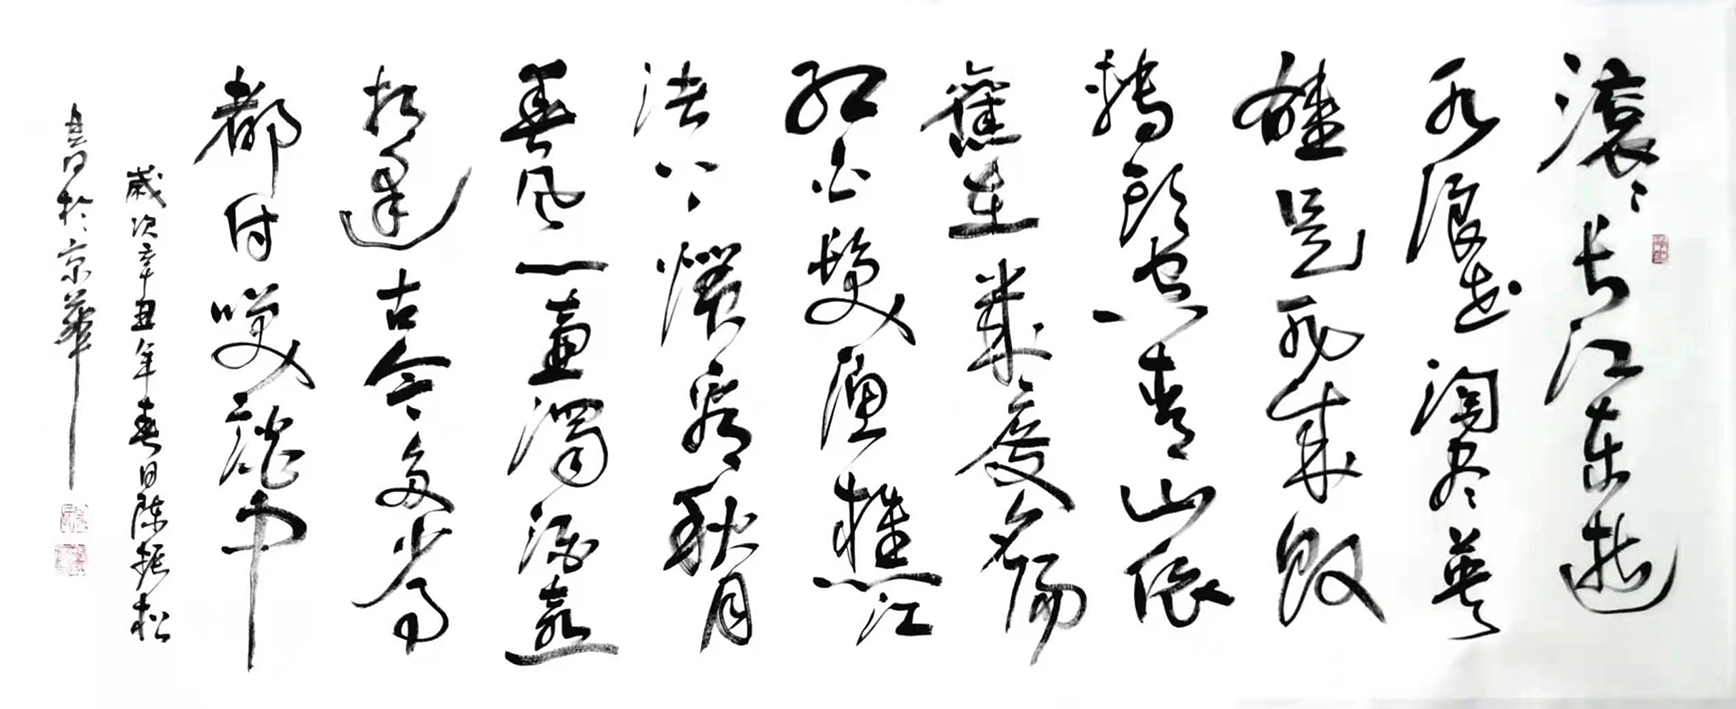 滚滚长江东逝
水浪花淘尽英
雄是非成败
转头空青山依
舊在幾度夕陽
红白髮渔樵江
渚上惯看秋月
春风一壶濁酒喜
相逢古今多少事
都付笑谈中
歲次辛丑年春日陈振松
於京華